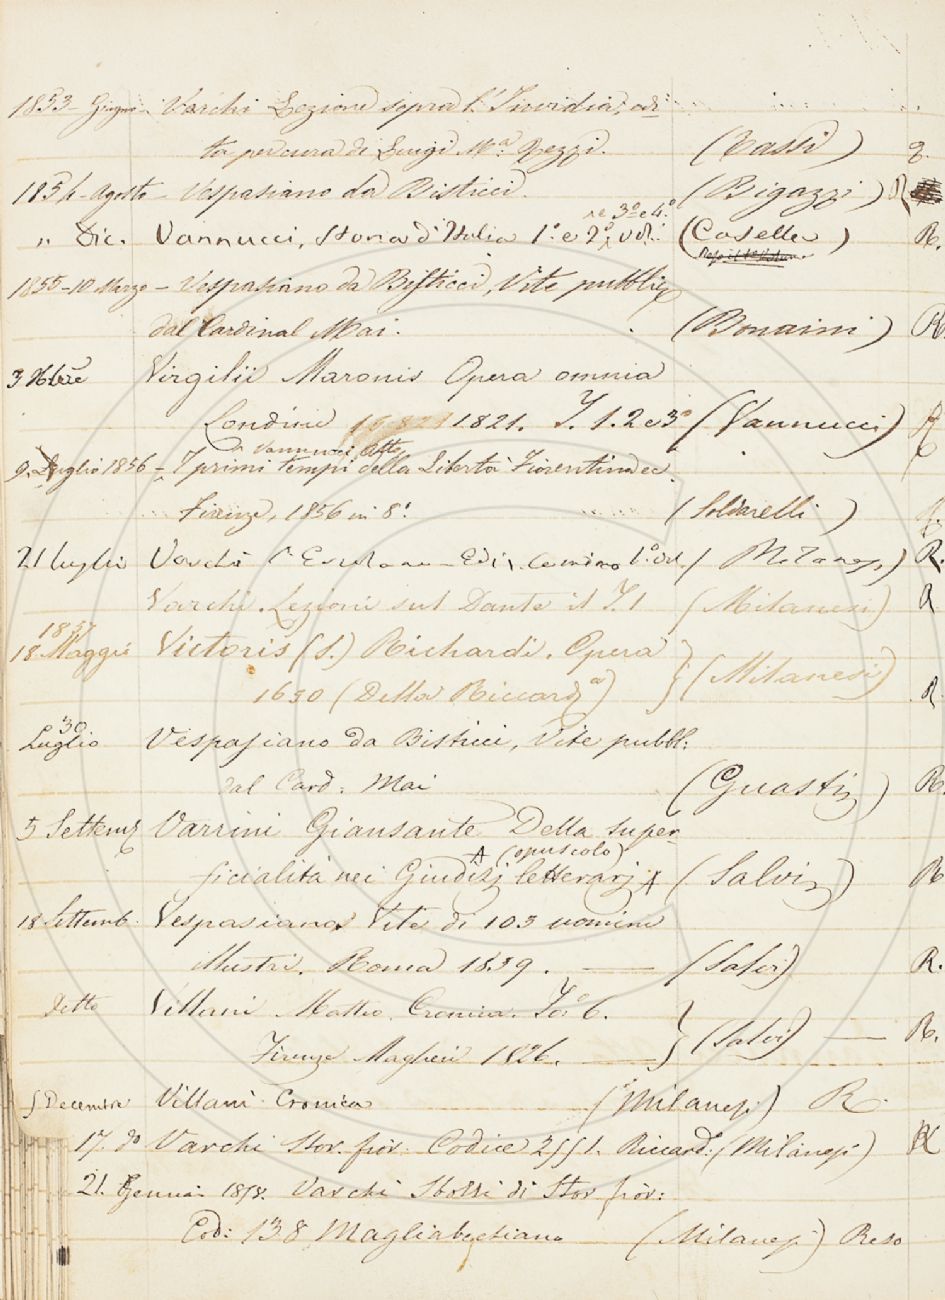 1853 - Giugno - Varchi Lezione sopra l'Invidia, edi
ta per cura di Luigi M.ª Rezzi. (Tassi) R.
1854 - Agosto - Vespasiano da Bisticci. (Bigazzi) R
" Dic. Vannucci, Storia d'Italia 1.º e 2.º, vol. (Caselle)  R.
e 3º e 4.º
1855 - 10 Marzo - Vespasiano da Bisticci, Vite pubblic
dal Cardinal Mai. (Bonaini) R.
3 Virgilii Maronis Opera omnia
Londini 1821. T. 1. 2 e 3º (Vannucci) R
Vannucci Atto
9. Luglio 1856 - I primi tempi della Libertà Fiorentina ec.
Firenze, 1856 in 8.º (Soldarelli)
21 luglio Varchi l'Ercolano - Ediz. Comino 1.º vol (Milanesi) R.
Varchi. Lezioni sul Dante il T. 1 (Milanesi) R
1857
18. Maggio Victoris (S.) Richardi. Opera
1650 (Della Riccardª) (Milanesi) R.
30
Luglio Vespasiano da Bisticci, Vite pubbl:
dal Card: Mai (Guasti) R.
5 Settemb Varrini Giansante Della super-
(opuscolo)
ficialità nei Giudizj letterarj (Salvi) R
18 Settemb. Vespasiano Vite di 103 uomini
illustri. Roma 1839. (Salvi) R.
Detto Villani Matteo Cronica. To: 6.
Firenze Magheri 1826. (Salvi) R.
5 Decembre Villani Cronica (Milanesi) R.
17. do Varchi Stor. fior. Codice 2551. Riccard: (Milanesi) R
21. Gennai 1858. Varchi Sbozzi di Stor fior:
Cod: 138 Magliabechiano (Milanesi) Reso